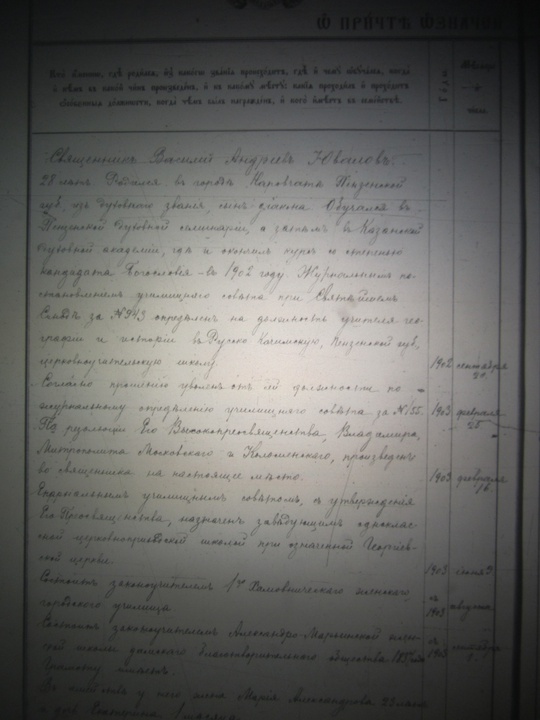 Ѿ ПРИЧТѢ
Его имѧ, гдѣ родилсѧ, изъ какого званїѧ происходитъ, гдѣ и чему обучалсѧ, когда
и кѣмъ въ какой чинъ произведенъ, и къ какому мѣсту; какїѧ проходилъ и проходитъ
должности, когда чѣмъ былъ награжденъ, и кого имѣетъ въ семействѣ.
Годъ
Мѣсѧцъ
и
число.
Священникъ Василій Андреевъ
28 лѣтъ. Родился въ городѣ Наровчатѣ Пензенской
губ., изъ духовнаго званія, сынъ діакона. Обучался въ
Пензенской духовной семинаріи, а затѣмъ въ Казанской
духовной академіи, гдѣ и окончилъ курсъ со степенью
кандидата Богословія въ 1902 году. Журнальнымъ по-
становленіемъ училищнаго совѣта при Святѣйшемъ
Синодѣ за № 943 опредѣленъ на должность учителя гео-
графіи и исторіи въ Русско Качимскую, Пензенской губ.,
церковноучительскую школу.
1902 сентября
20.
Согласно прошенію уволенъ отъ сей должности по
журнальному опредѣленію училищнаго совѣта за № 155.
1903 февраля
По резолюціи Его Высокопреосвященства, Владимира,
Митрополита Московскаго и Коломенскаго, произведенъ
во священника на настоящее мѣсто.
1903 февраля
16.
Епархіальнымъ училищнымъ совѣтомъ, съ утвержденія
Его Преосвященства, назначенъ завѣдующимъ одноклас-
сной церковноприходской школой при означенной Георгіев-
ской церкви.
1903 іюня 9
Состоитъ законоучителемъ 1го Хамовническаго женскаго
городского училища
съ
1903 августа
Состоитъ законоучителемъ Александро-Маріинской жен-
ской школы дамскаго благотворительнаго общества
съ
1903
Грамоту имѣетъ.
Въ семействѣ у него жена Марія Александрова 23 лѣтъ
и дочь Екатерина 1 мѣсяца.